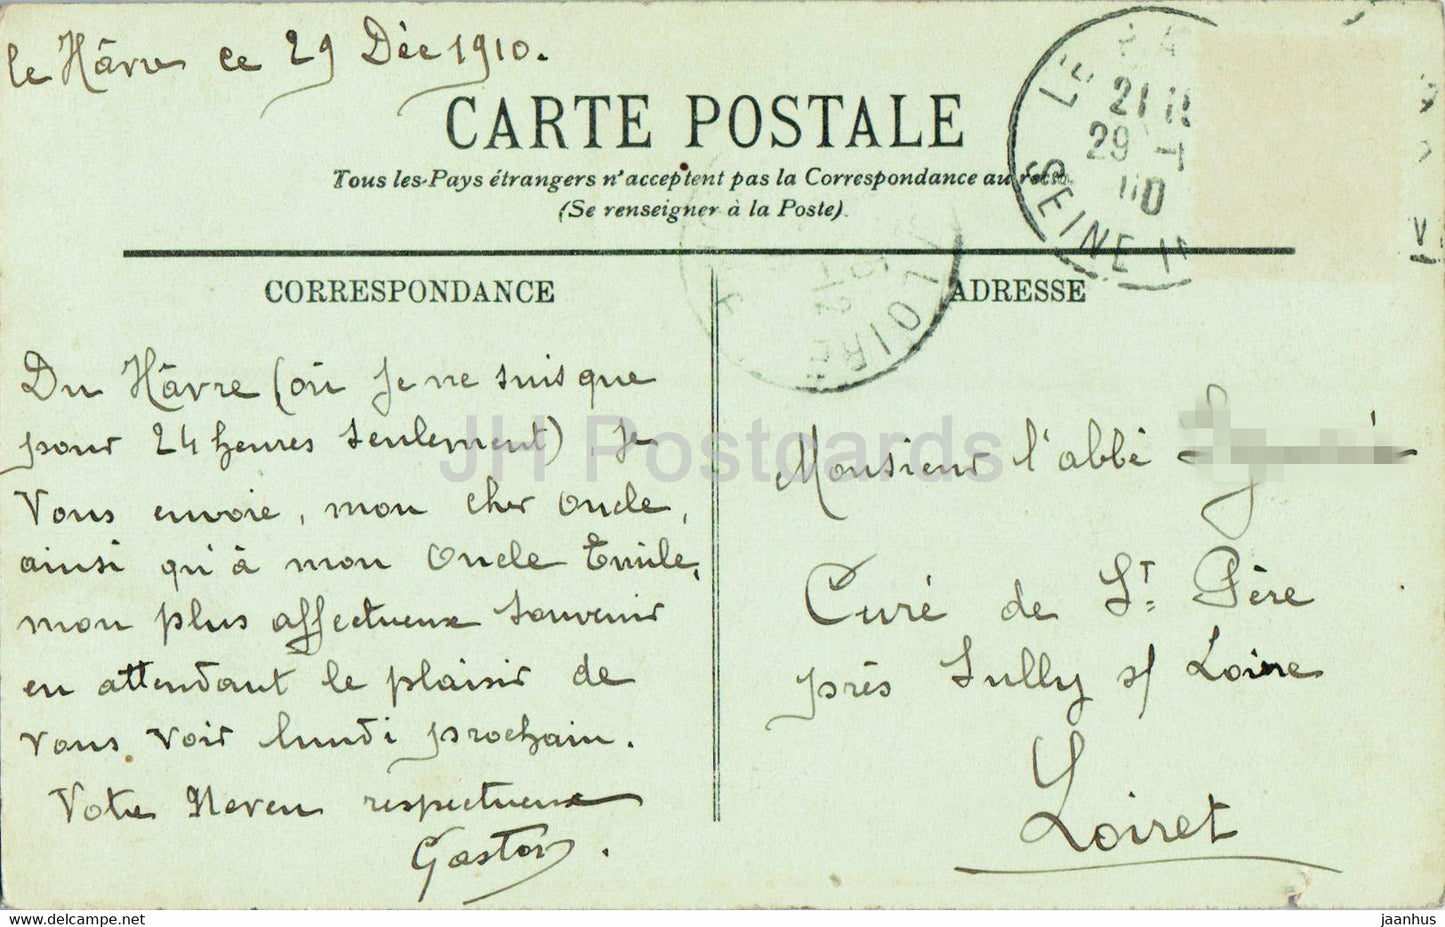 le Hâvre ce 29 Déc 1910.
CARTE POSTALE
Tous les Pays étrangers n'acceptent pas la Correspondance au recto
(Se renseigner à la Poste).
LE HA
21
29
SEINE
LOIRE
CORRESPONDANCE
Du Hâvre (où je ne suis que
pour 24 heures seulement), je
Vous envoie, mon cher Oncle,
ainsi qu'à mon Oncle Emile,
mon plus affectueux souvenir
en attendant le plaisir de
vous voir lundi prochain.
Votre Neveu respectueux
Gaston.
ADRESSE
Monsieur l'abbé
Curé de St Père
près Sully s/ Loire
Loiret
JH Postcards
jaanhus